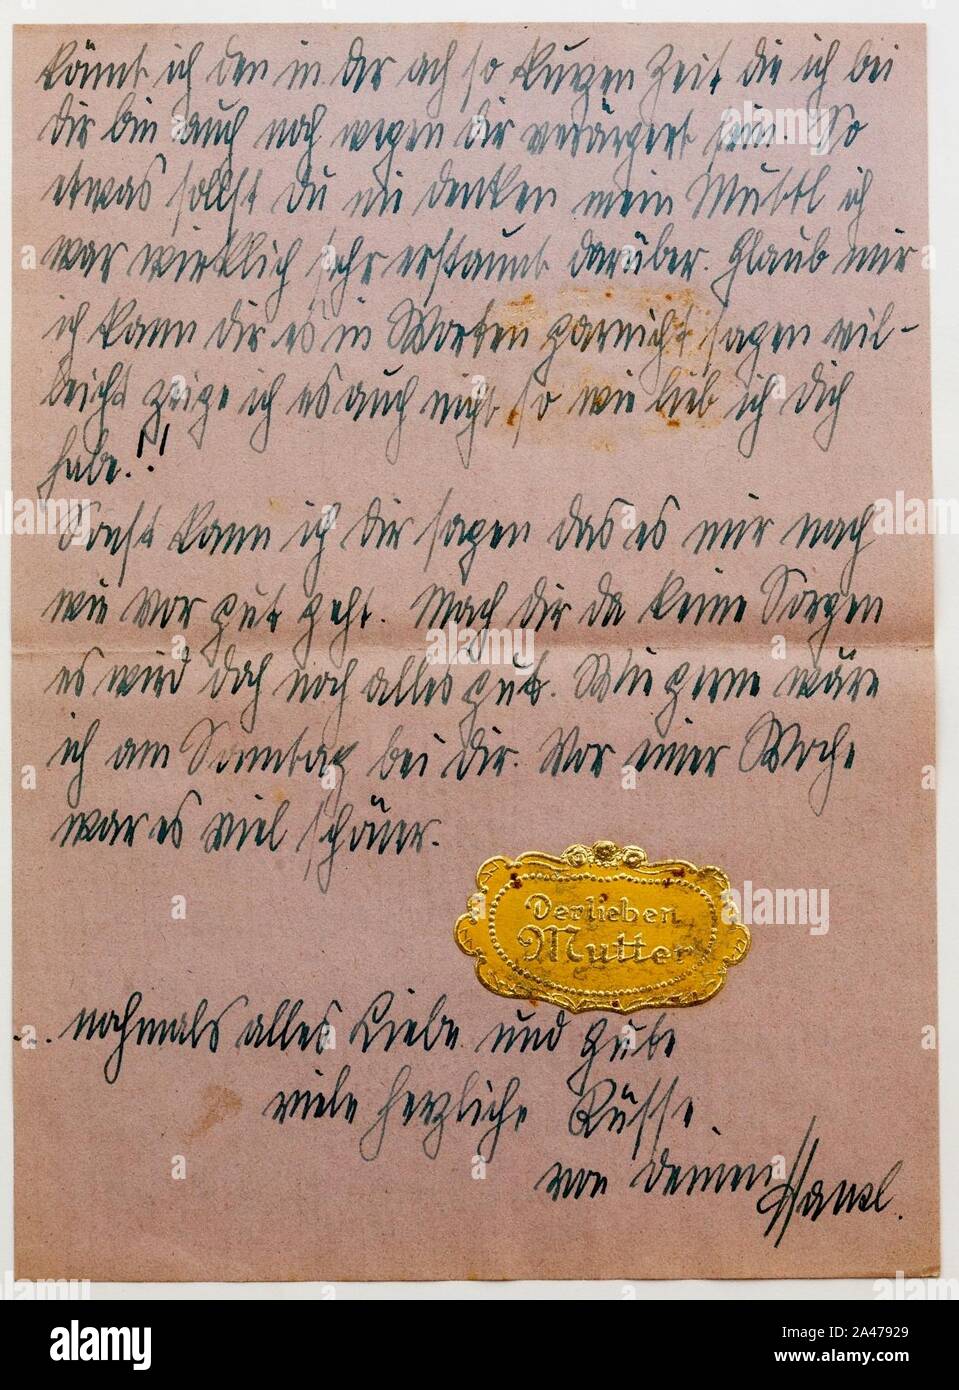 könnt ich den in der ach so kurzen Zeit die ich bei
dir bin auch noch wegen dir verärgert sein. So
etwas sollst du nie denken mein Muttl ich
war wirklich sehr erstaunt darüber. Glaub mir
ich kann dir es in Worten garnicht sagen vil-
leicht zeige ich es auch nicht so wie lieb ich dich
habe.!!
Sonst kann ich dir sagen das es mir nach
wie vor gut geht. Mach dir da keine Sorgen
es wird doch noch alles gut. Wie gerne wäre
ich am Sonntag bei dir. Vor einer Woche
war es viel schöner.
Der lieben
Mutter
... nochmals alles Liebe und gute
viele herzliche Küsse.
von deinem Hansl.
alamy
Image ID: 2A47929
www.alamy.com